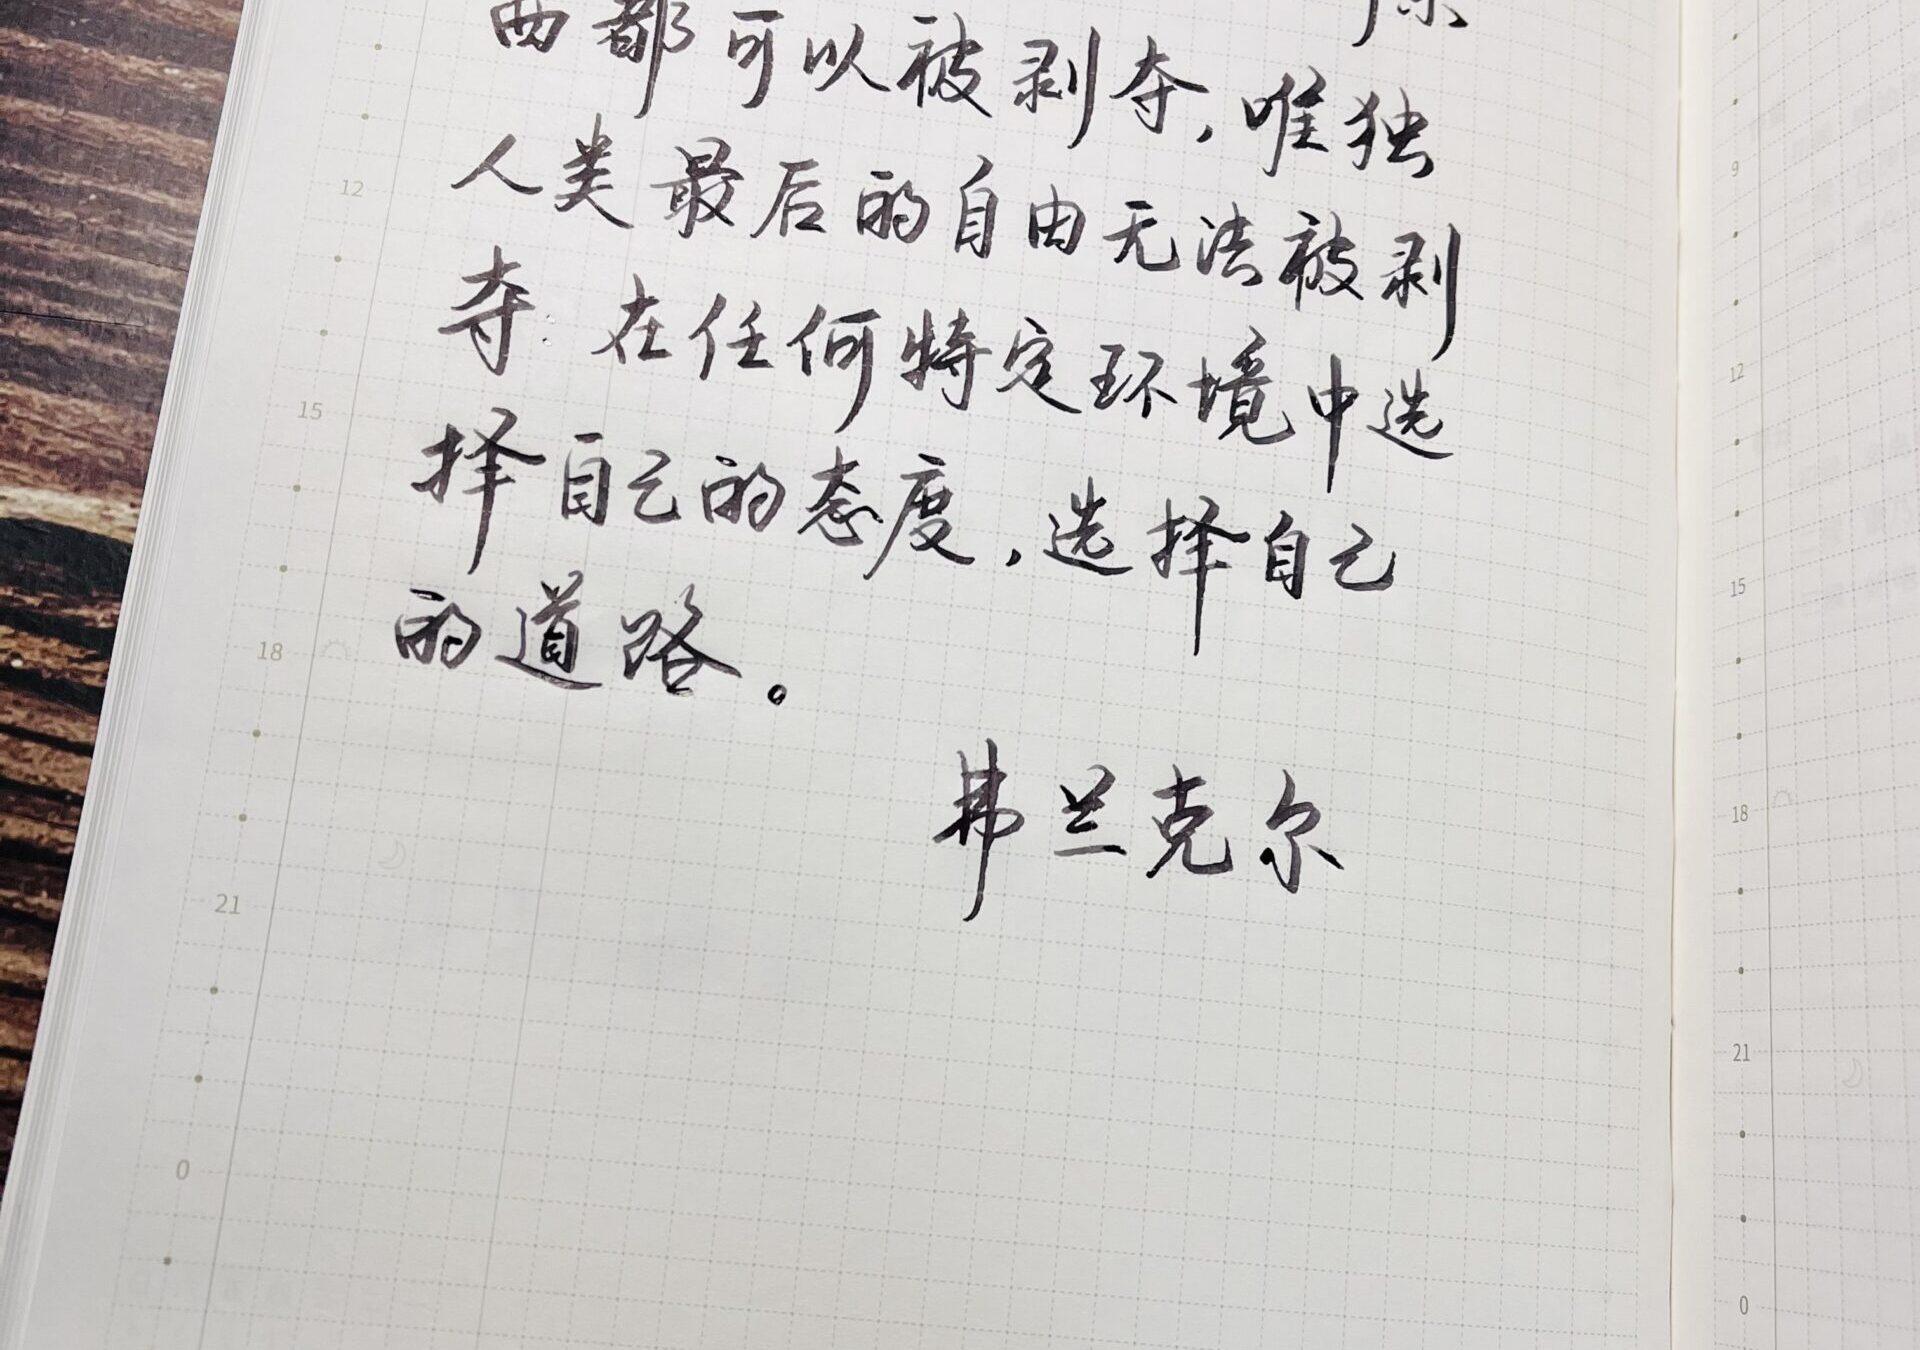 西都可以被剥夺，唯独
人类最后的自由无法被剥
夺.在任何特定环境中选
择自己的态度，选择自己
的道路。
弗兰克尔
12
15
18
21
0
9
12
15
18
21
0